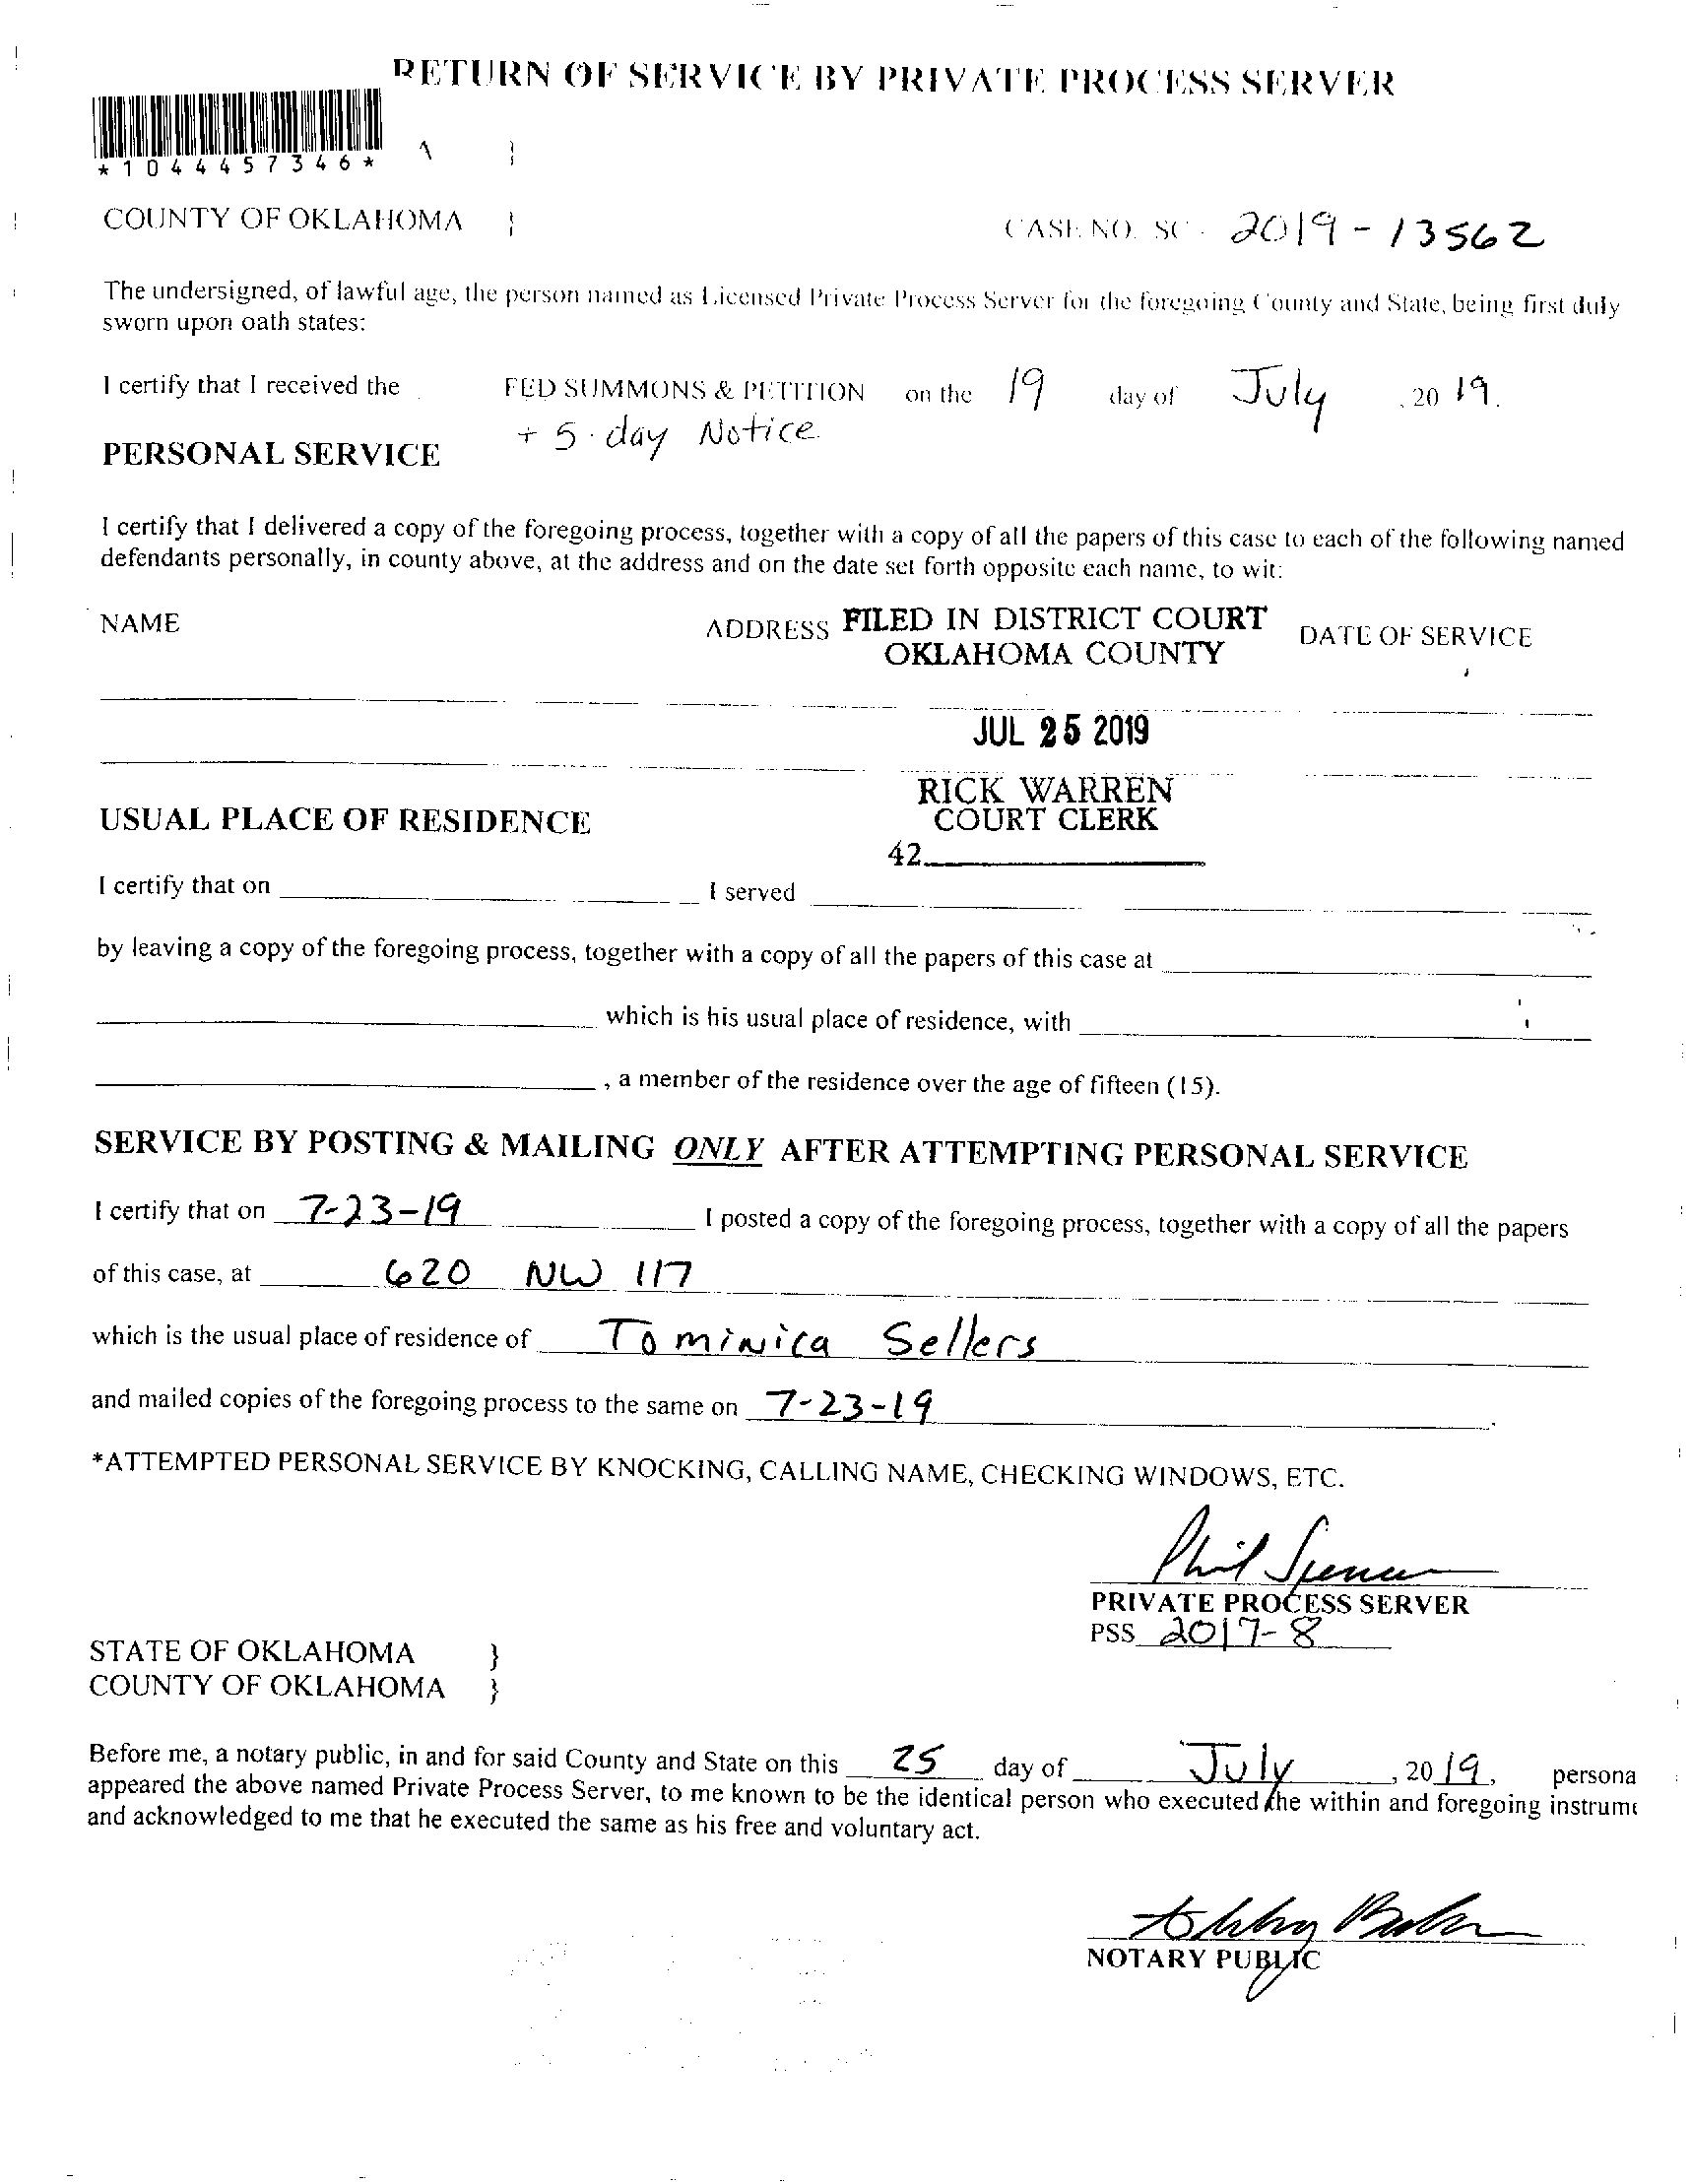 RETURN OF SERVICE BY PRIVATE PROCESS SERVER
*1044457346*
COUNTY OF OKLAHOMA }
CASE NO. SC - 2019-13562
The undersigned, of lawful age, the person named as Licensed Private Process Server for the foregoing County and State, being first duly
sworn upon oath states:
I certify that I received the FED SUMMONS & PETITION on the 19 day of July , 20 19.
+ 5-day Notice
PERSONAL SERVICE
I certify that I delivered a copy of the foregoing process, together with a copy of all the papers of this case to each of the following named
defendants personally, in county above, at the address and on the date set forth opposite each name, to wit:
NAME ADDRESS DATE OF SERVICE
FILED IN DISTRICT COURT
OKLAHOMA COUNTY
JUL 25 2019
RICK WARREN
COURT CLERK
42
USUAL PLACE OF RESIDENCE
I certify that on I served
by leaving a copy of the foregoing process, together with a copy of all the papers of this case at
which is his usual place of residence, with
, a member of the residence over the age of fifteen (15).
SERVICE BY POSTING & MAILING ONLY AFTER ATTEMPTING PERSONAL SERVICE
I certify that on 7-23-19 I posted a copy of the foregoing process, together with a copy of all the papers
of this case, at 620 NW 117
which is the usual place of residence of Tominica Sellers
and mailed copies of the foregoing process to the same on 7-23-19.
*ATTEMPTED PERSONAL SERVICE BY KNOCKING, CALLING NAME, CHECKING WINDOWS, ETC.
Phil Spencer
PRIVATE PROCESS SERVER
PSS 2017-8
STATE OF OKLAHOMA }
COUNTY OF OKLAHOMA }
Before me, a notary public, in and for said County and State on this 25 day of July , 20 19, persona
appeared the above named Private Process Server, to me known to be the identical person who executed the within and foregoing instrume
and acknowledged to me that he executed the same as his free and voluntary act.
NOTARY PUBLIC